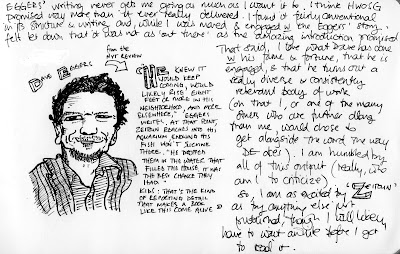 EGGERS' writing never gets me going as much as I want it to. I think HWOSG
promised way more than it ever really delivered. I found it fairly conventional
in its structure & writing and, while I was moved & engaged in the Eggers' story,
felt let down that it does not as 'out there' as the dazzling introduction promised
DAVE EGGERS
from the
NYT REVIEW
"HE KNEW IT
WOULD KEEP
COMING, WOULD
LIKELY RISE EIGHT
FEET OR MORE IN HIS
NEIGHBORHOOD, AND MORE
ELSEWHERE," EGGERS
WRITES, AT THAT POINT,
ZEITOUN REACHES INTO HIS
AQUARIUM KNOWING HIS
FISH WON'T SURVIVE
THERE. "HE DROPPED
THEM IN THE WATER THAT
FILLED THE HOUSE. IT WAS
THE BEST CHANCE THEY
HAD."
KIDS: THAT'S THE KIND
OF REPORTING DETAIL
THAT MAKES A BOOK
LIKE THIS COME ALIVE
That said, I love what Dave has done
w/ his fame & fortune, that he is
engaged, & that he turns out a
really diverse & consistently
relevant body of work
(oh that I, or one of the many
others who are further along
than me would chose to
get alongside the world the way
DE does). I am humbled by
all of this output (really, who
am I to criticize)
So, I am as excited by "ZEITOUN"
as by anything else just
published, though I will likely
have to wait awhile before I get
to read it.